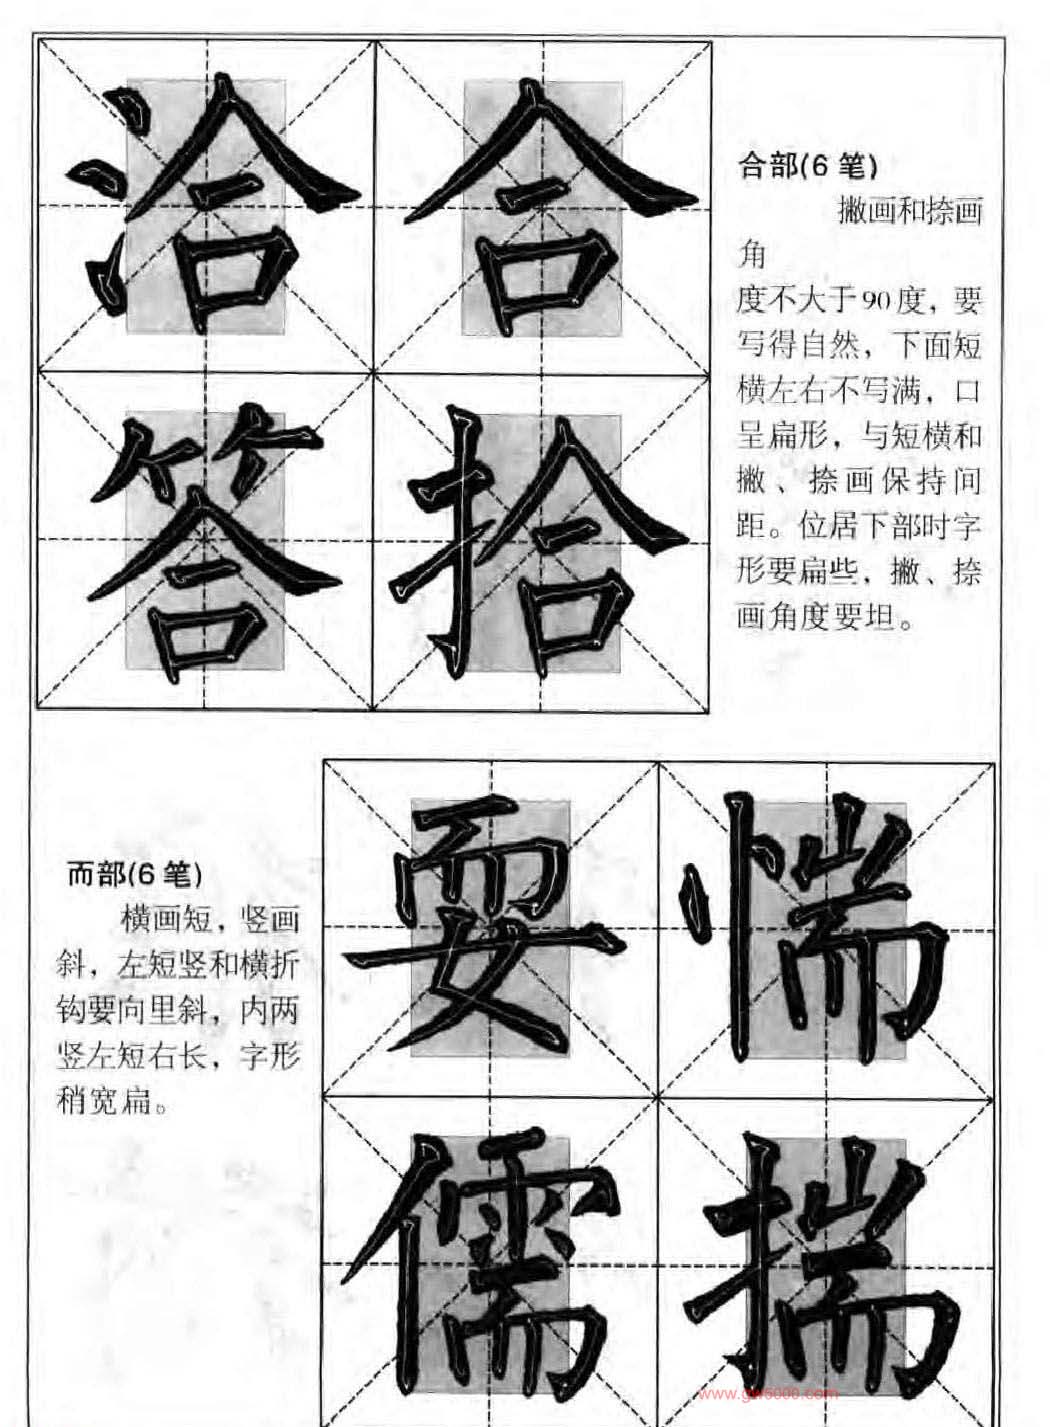 洽 合
答 拾
合部(6 笔)
撇画和捺画
角
度不大于90度，要
写得自然，下面短
横左右不写满，口
呈扁形，与短横和
撇、捺画保持间
距。位居下部时字
形要扁些，撇、捺
画角度要坦。
而部(6 笔)
横画短，竖画
斜，左短竖和横折
钩要向里斜，内两
竖左短右长，字形
稍宽扁。
耍 惴
儒 揣
www.gw5000.com